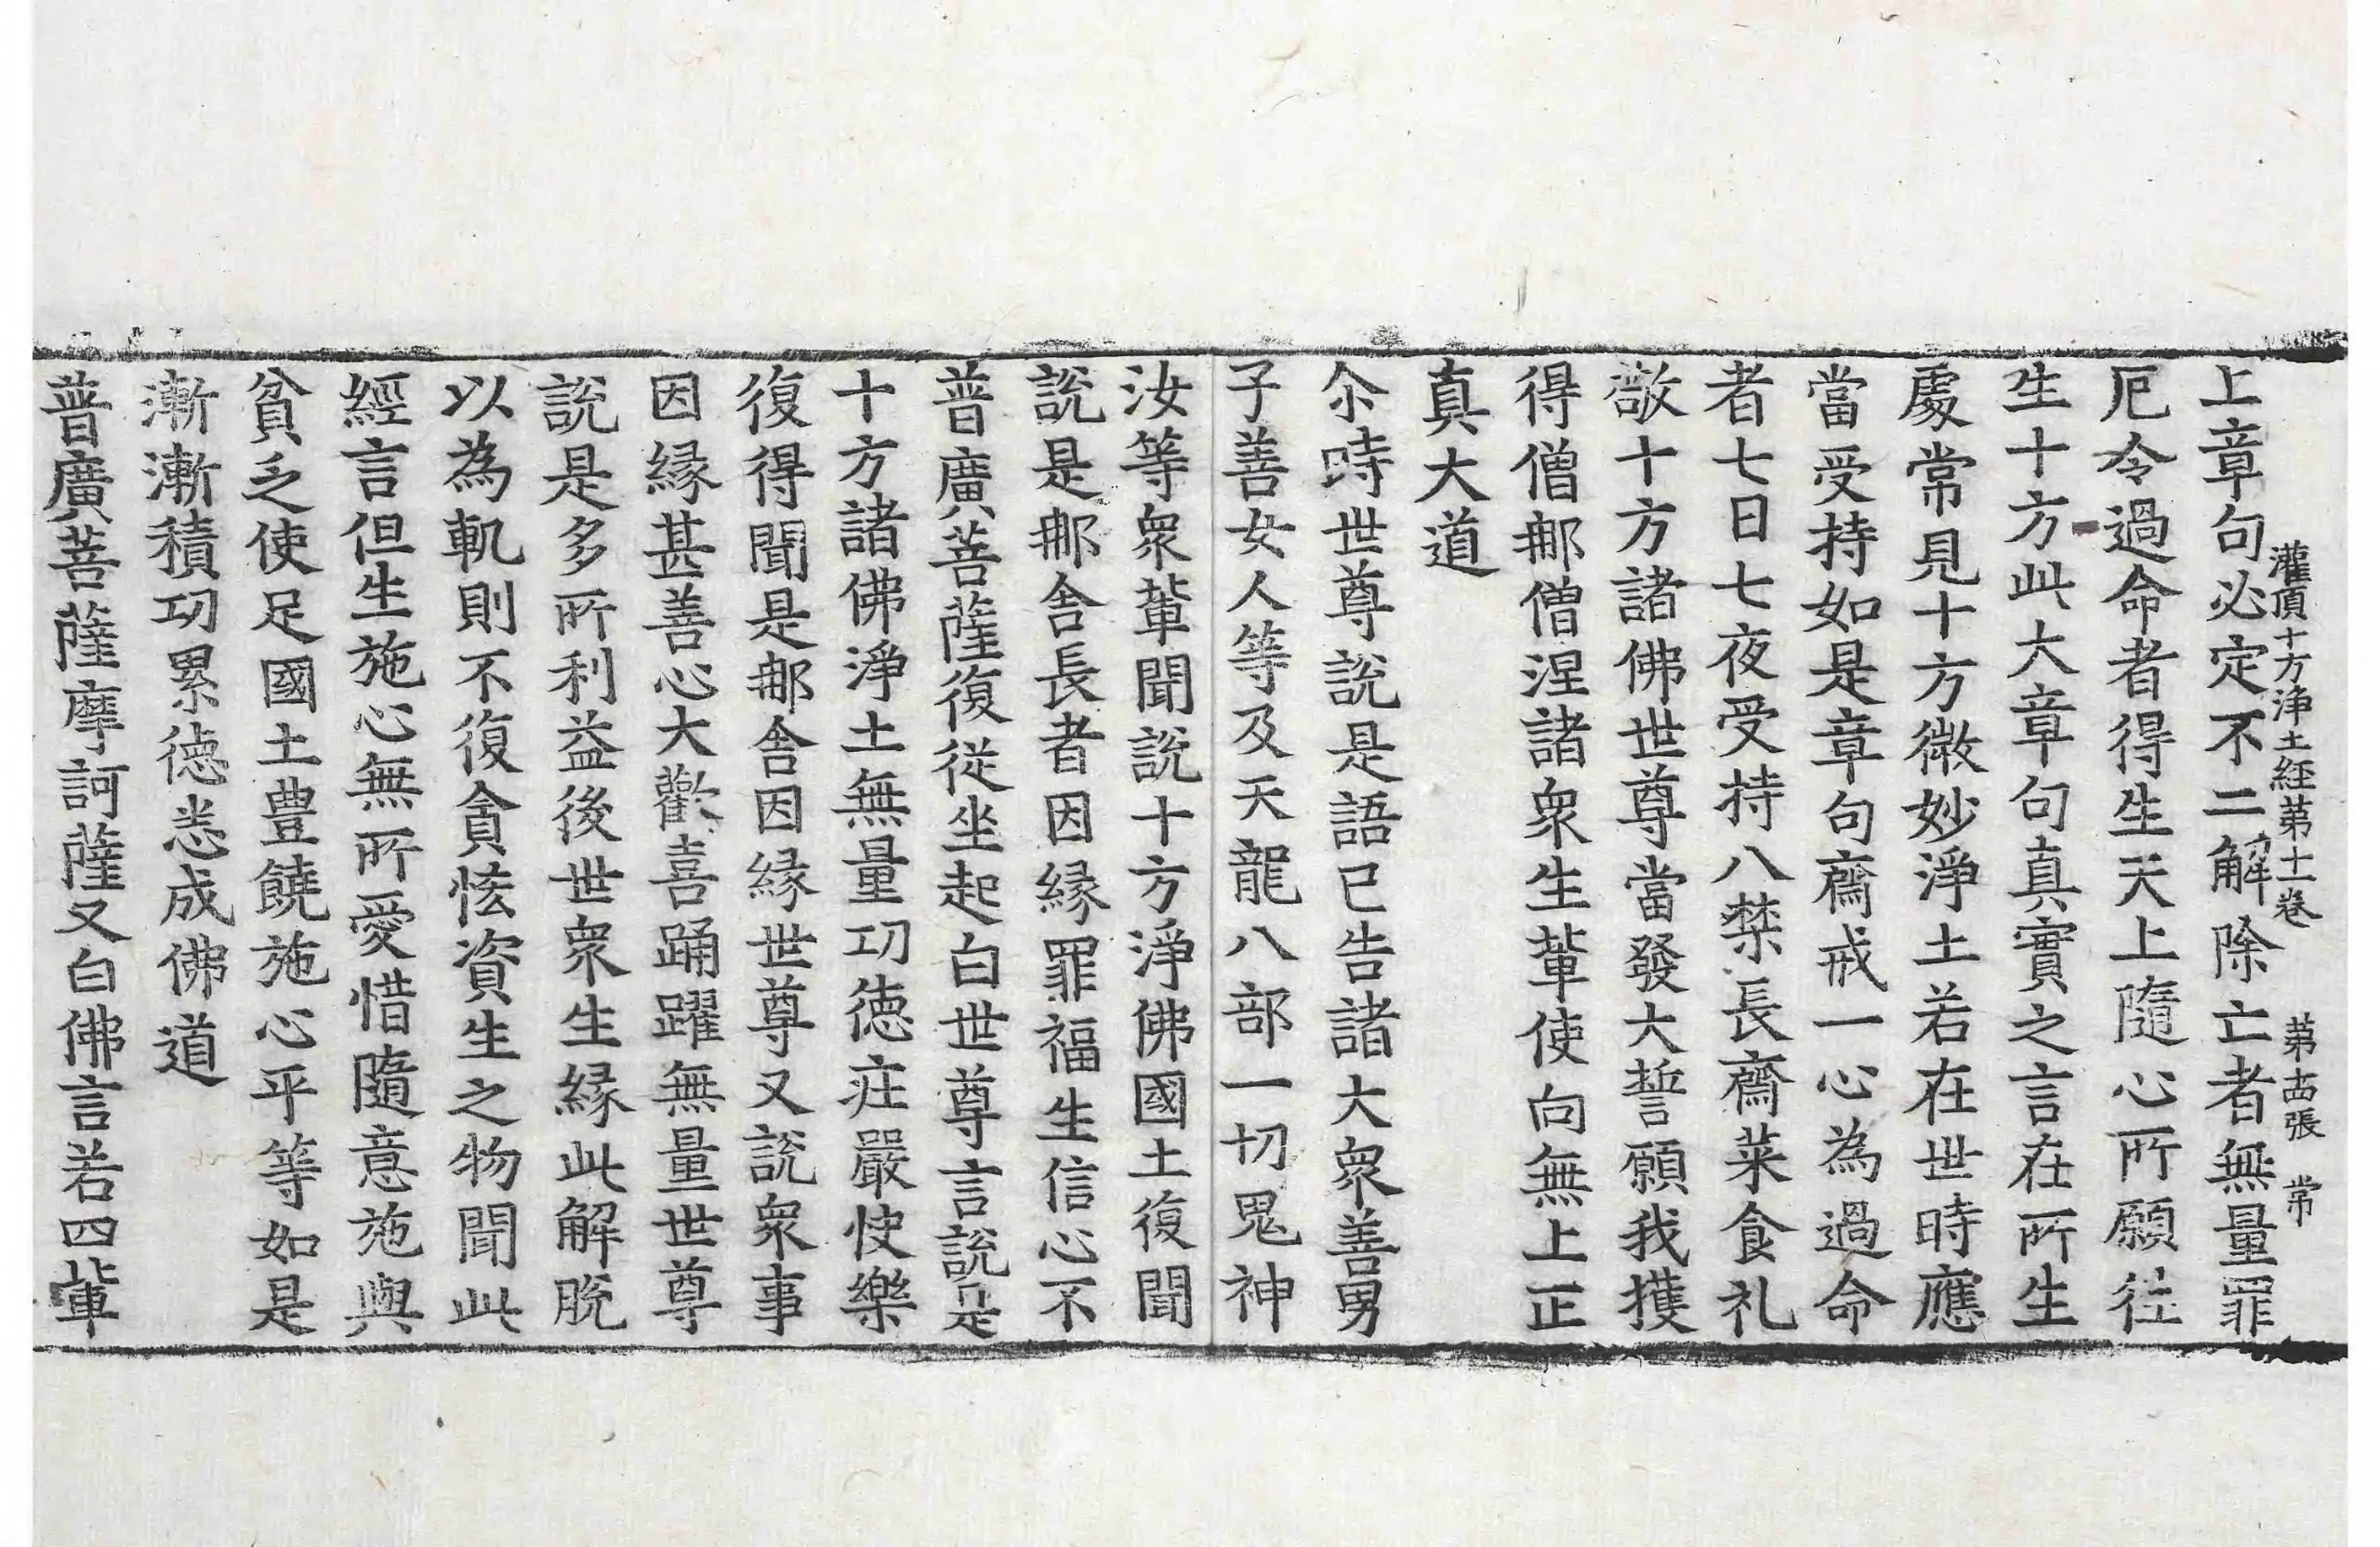 灌頂十方淨土經第十一卷　第十四張　常
上章句必定不二解除亡者無量罪
厄令過命者得生天上隨心所願往
生十方此大章句真實之言在所生
處常見十方微妙淨土若在世時應
當受持如是章句齋戒一心為過命
者七日七夜受持八禁長齋菜食礼
敬十方諸佛世尊當發大誓願我獲
得僧那僧涅諸衆生輩使向無上正
真大道
尒時世尊說是語已告諸大衆善男
子善女人等及天龍八部一切鬼神
汝等衆輩聞說十方淨佛國土復聞
說是那舍長者因緣罪福生信心不
普廣菩薩復從坐起白世尊言說是
十方諸佛淨土無量功德莊嚴快樂
復得聞是那舍因緣世尊又說衆事
因緣甚善心大歡喜踊躍無量世尊
說是多所利益後世衆生緣此解脫
以為軌則不復貪悋資生之物聞此
經言但生施心無所愛惜隨意施與
貧乏使足國土豊饒施心平等如是
漸漸積功累德悉成佛道
普廣菩薩摩訶薩又白佛言若四輩